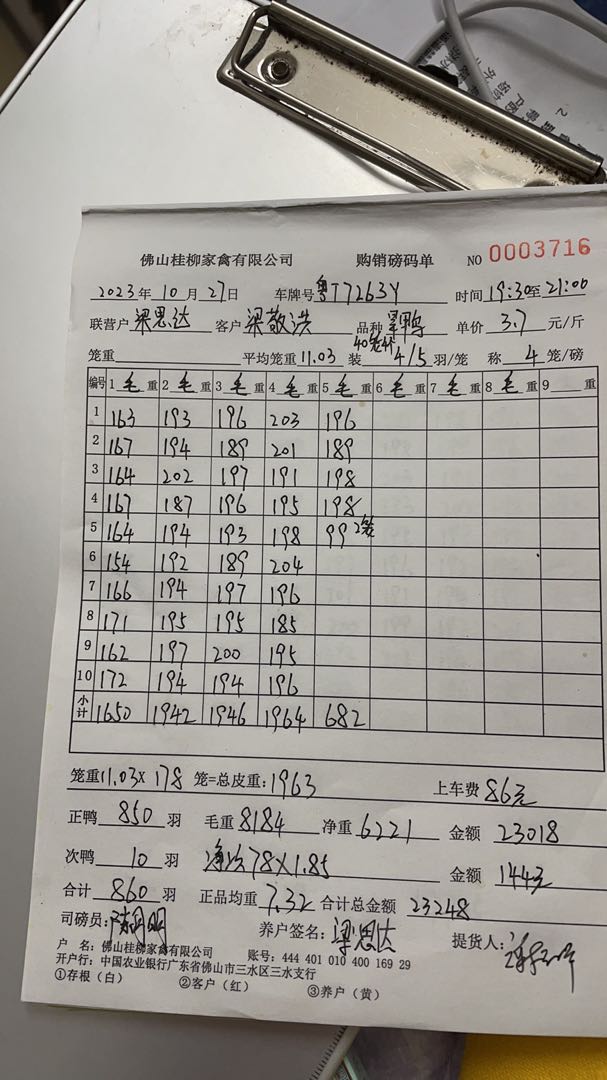 佛山桂柳家禽有限公司 购销磅码单 NO 0003716
2023年10月27日 车牌号粤T7263Y 时间19:30至21:00
联营户梁思达 客户梁敬洪 品种 鸭 单价3.7元/斤
笼重 平均笼重11.03 装4/5羽/笼 称4笼/磅
编号 1毛重 2毛重 3毛重 4毛重 5毛重 6毛重 7毛重 8毛重 9 重
1 163 193 196 203 196
2 167 194 189 201 189
3 164 202 197 191 198
4 167 187 196 195 198
5 164 194 193 198 99 2笼
6 154 192 189 204
7 166 194 197 196
8 171 195 195 185
9 162 197 200 195
10 172 194 194 196
小计 1650 1942 1946 1964 682
笼重11.03×178笼=总皮重:1963 上车费86元
正鸭850羽 毛重8184 净重6221 金额23018
次鸭10羽 净次78×1.85 金额144元
合计860羽 正品均重7.32 合计总金额23248
司磅员: 养户签名:梁思达 提货人:
户 名:佛山桂柳家禽有限公司 账号:444 401 010 400 169 29
开户行:中国农业银行广东省佛山市三水区三水支行
①存根(白) ②客户(红) ③养户(黄)